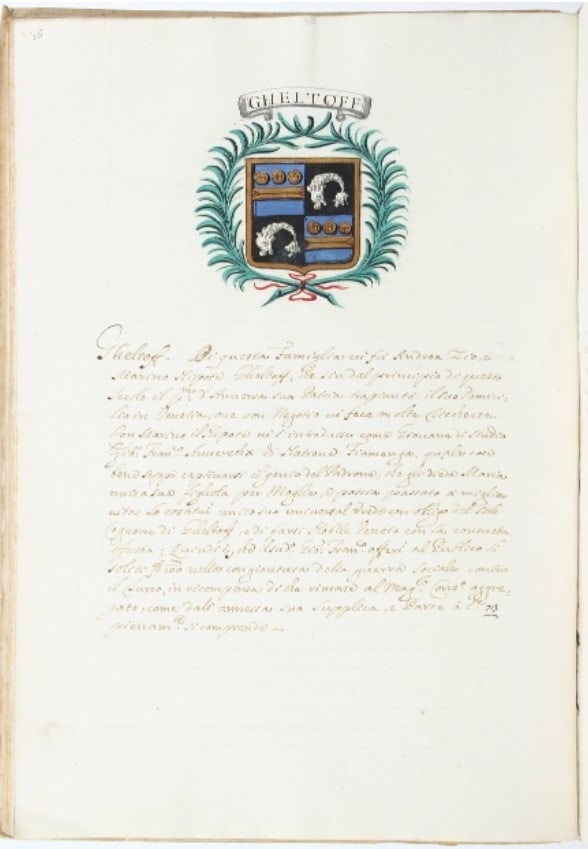 26
GHELTOFF
Gheltoff. Di questa Famiglia vi fù Andrea Zio, e
Marino Nipote Gheltoff, che sin dal principio di questo
Secolo il p.mo d'Anversa sua Patria trapiantò il suo Domici-
lio in Venetia, ove con Negotio vi fece molte Ricchezze.
Con Marino il Nipote vi s'introdusse come Giovane di Studio
Gio: Fran.co di Natione Fiamenga, quale così
bene seppe captivarsi il genio del Padrone, che gli diede Maria
unica sua figliola per Moglie, e poscia passato a miglior
vita lo costituì unico suo universal Erede con obligo del solo
Cognome di Gheltoff, e di farsi Nobile Veneto con la consueta
offerta; Quindi è, che il sud.o Gio: Fran.co offerì al Publico li
soliti nella congiontura della guerra Sociale contro
il Turco, in ricompensa di che rimase al Mag.r Cons.o aggre-
gato come dall'annessa sua Supplica, e Parte à c.te 713
pienam.te si comprende